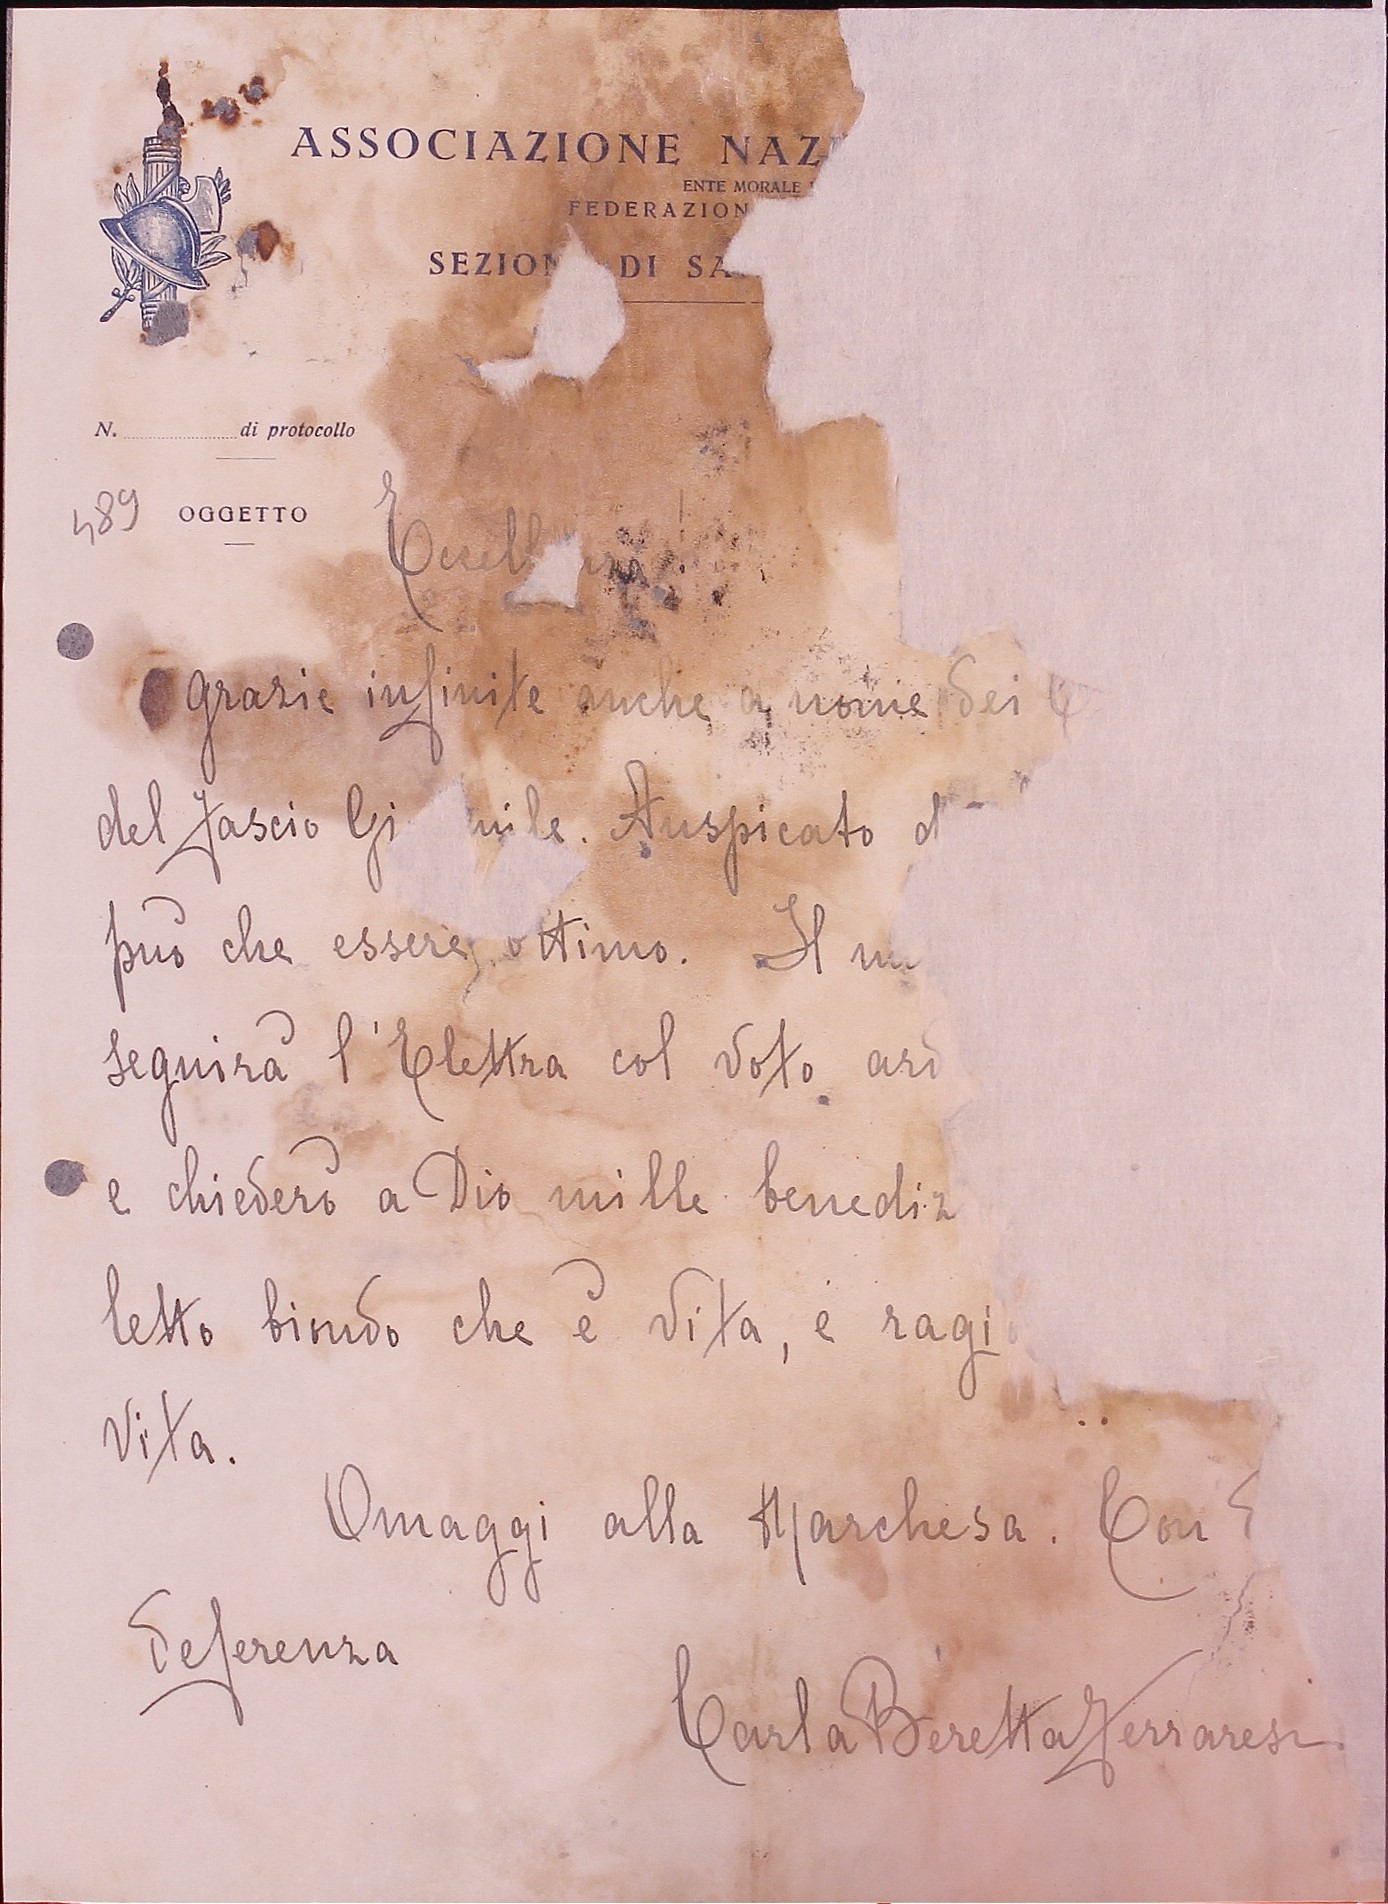 ASSOCIAZIONE NAZ
ENTE MORALE
FEDERAZION
SEZION DI SA
N. di protocollo
489 OGGETTO
grazie infinite anche a nome dei
del Fascio Gi nile. Auspicato d
può che essere ottimo. Il
seguirà l'Elettra col voto ard
e chiederò a Dio mille benediz
letto biondo che è vita, e ragio
vita.
Omaggi alla Marchesa. Con
deferenza
Carla Beretta Ferraresi